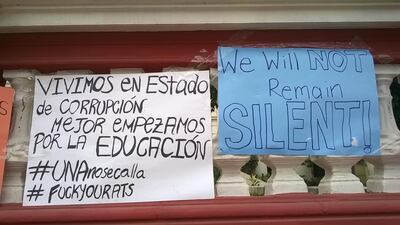 VIVIMOS en Estado
de CORRUPCIÓN
MEJOR EMPEZAMOS
POR LA EDUCACIÓN
#UNAnosecalla
#FUCKYOURATS
We Will NOT
Remain
SILENT!